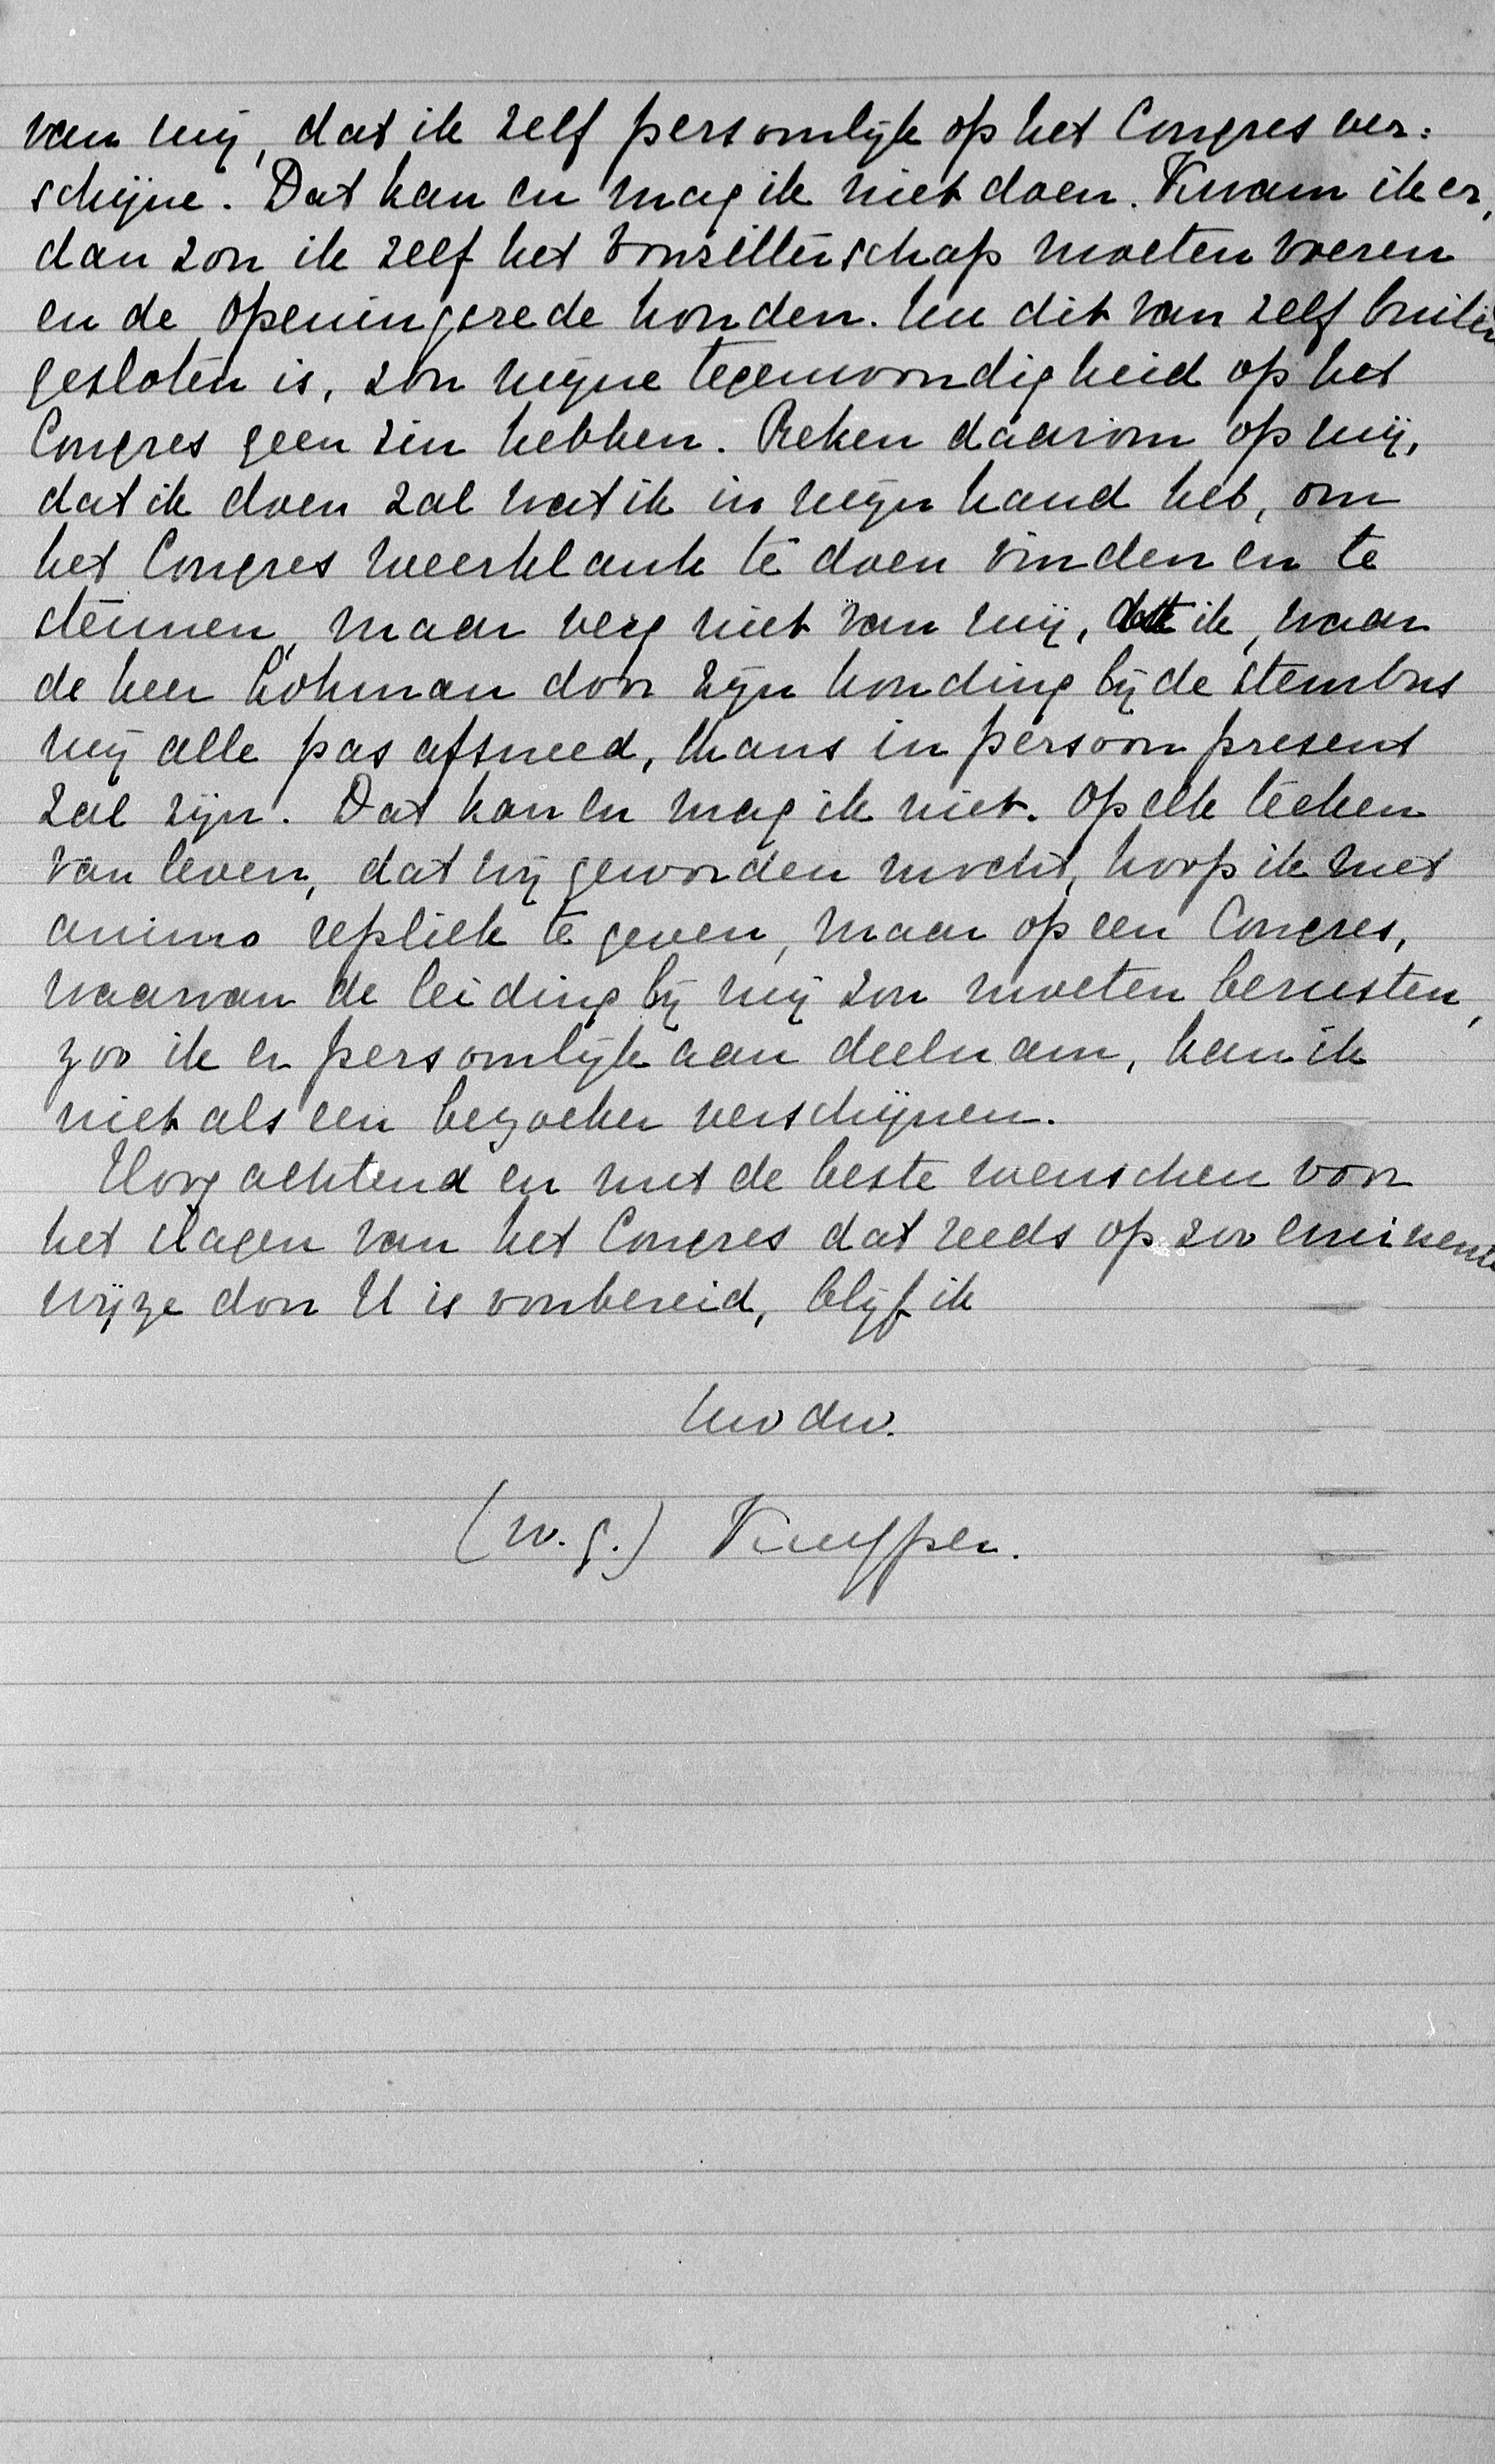 van mij, dat ik zelf persoonlijk op het Congres ver=
schijne. Dat kan en mag ik niet doen. Kwam ik er,
dan zou ik zelf het voorzitterschap moeten voeren
en de openingsrede houden. Nu dit van zelf buiten
gesloten is, zou mijne tegenwoordigheid op het
Congres geen zin hebben. Reken daarom op mij,
dat ik doen zal wat ik in mijn hand heb, om
het Congres weerklank te doen vinden en te
steunen, maar verg niet van mij, dat ik, waar
de heer Lohman door zijn houding bij de stembus
mij alle pas afsneed, thans in persoon present
zal zijn. Dat kan en mag ik niet. Op elk teeken
van leven, dat mij geworden mocht, hoop ik met
animo repliek te geven, maar op een Congres,
waarvan de leiding bij mij zou moeten berusten,
zoo ik er persoonlijk aan deelnam, kan ik
niet als een bezoeker verschijnen.
Hoogachtend en met de beste wenschen voor
het slagen van het Congres dat reeds op zoo eminente
wijze door U is voorbereid, blijf ik
Uw dw.
(w.g.) Kuyper.